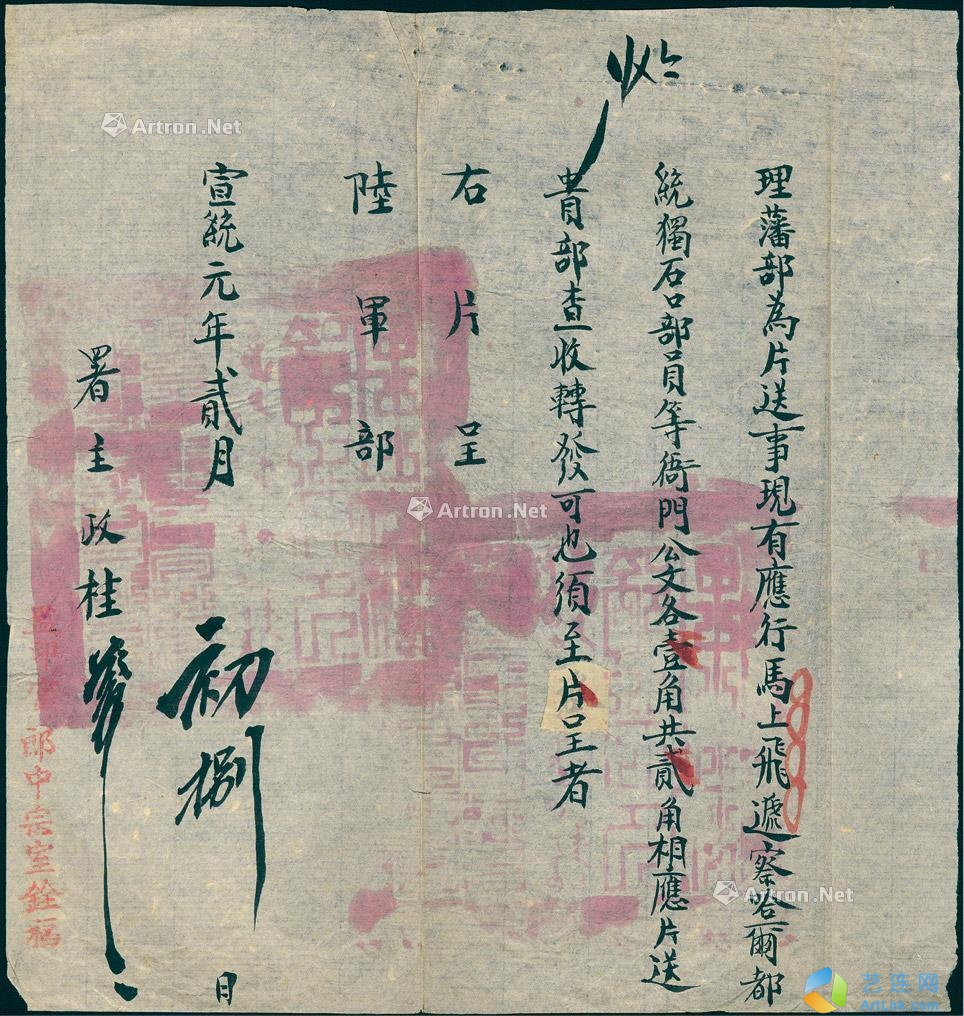 收
理藩部為片送事現有應行馬上飛遞察哈爾都
統獨石口部員等衙門公文各壹角共貳角相應片送
貴部查收轉發可也須至片呈者
右片呈
陸軍部
宣統元年貳月初捌日
署主政桂
郎中宗室銓福
Artron.Net
Artron.Net
Artron.Net
艺连网